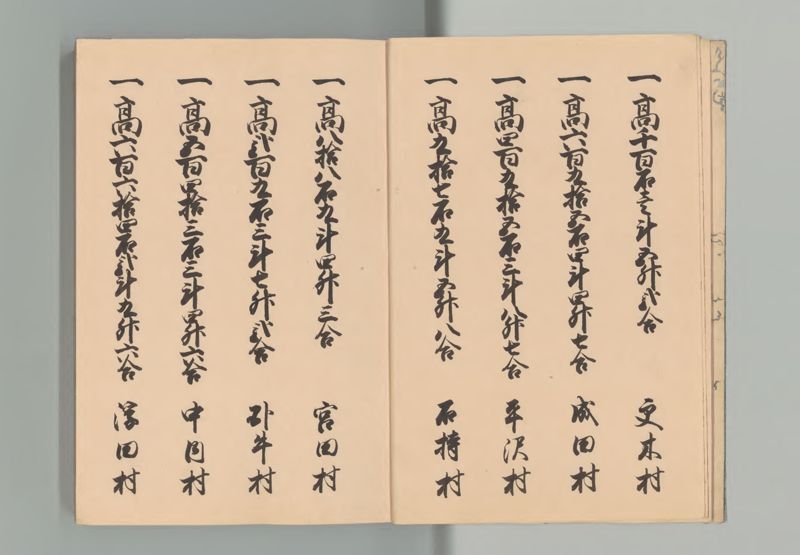 一高千百石壱斗五升弐合 更木村
一高六百九拾五石四斗四升七合 成田村
一高四百九拾五石三斗八升七合 平沢村
一高九拾七石九斗五升八合 石持村
一高八拾八石九斗四升三合 宮田村
一高弐百九石三斗七升弐合 卧牛村
一高五百四拾三石三斗四升六合 中内村
一高六百六拾四石弐斗九升六合 浮田村